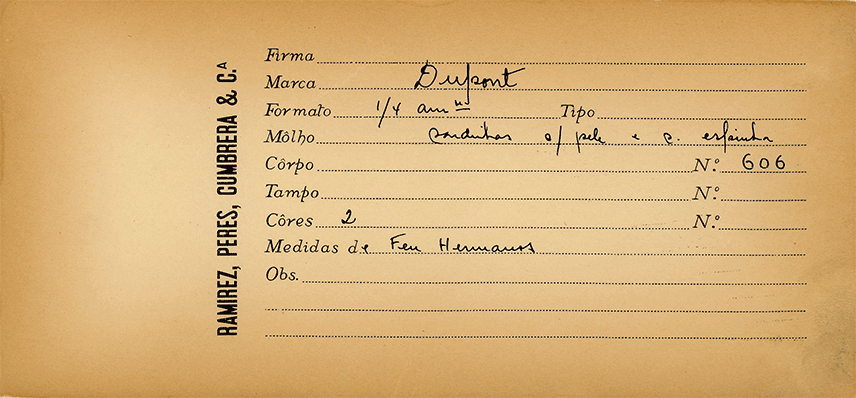 RAMIREZ, PERES, CUMBRERA & C.ª
Firma
Marca Dupont
Formato 1/4 am Tipo
Môlho sardinhas s/ pele e s. espinha
Côrpo N.º 606
Tampo N.º
Côres 2 N.º
Medidas de Feu Hermanos
Obs.